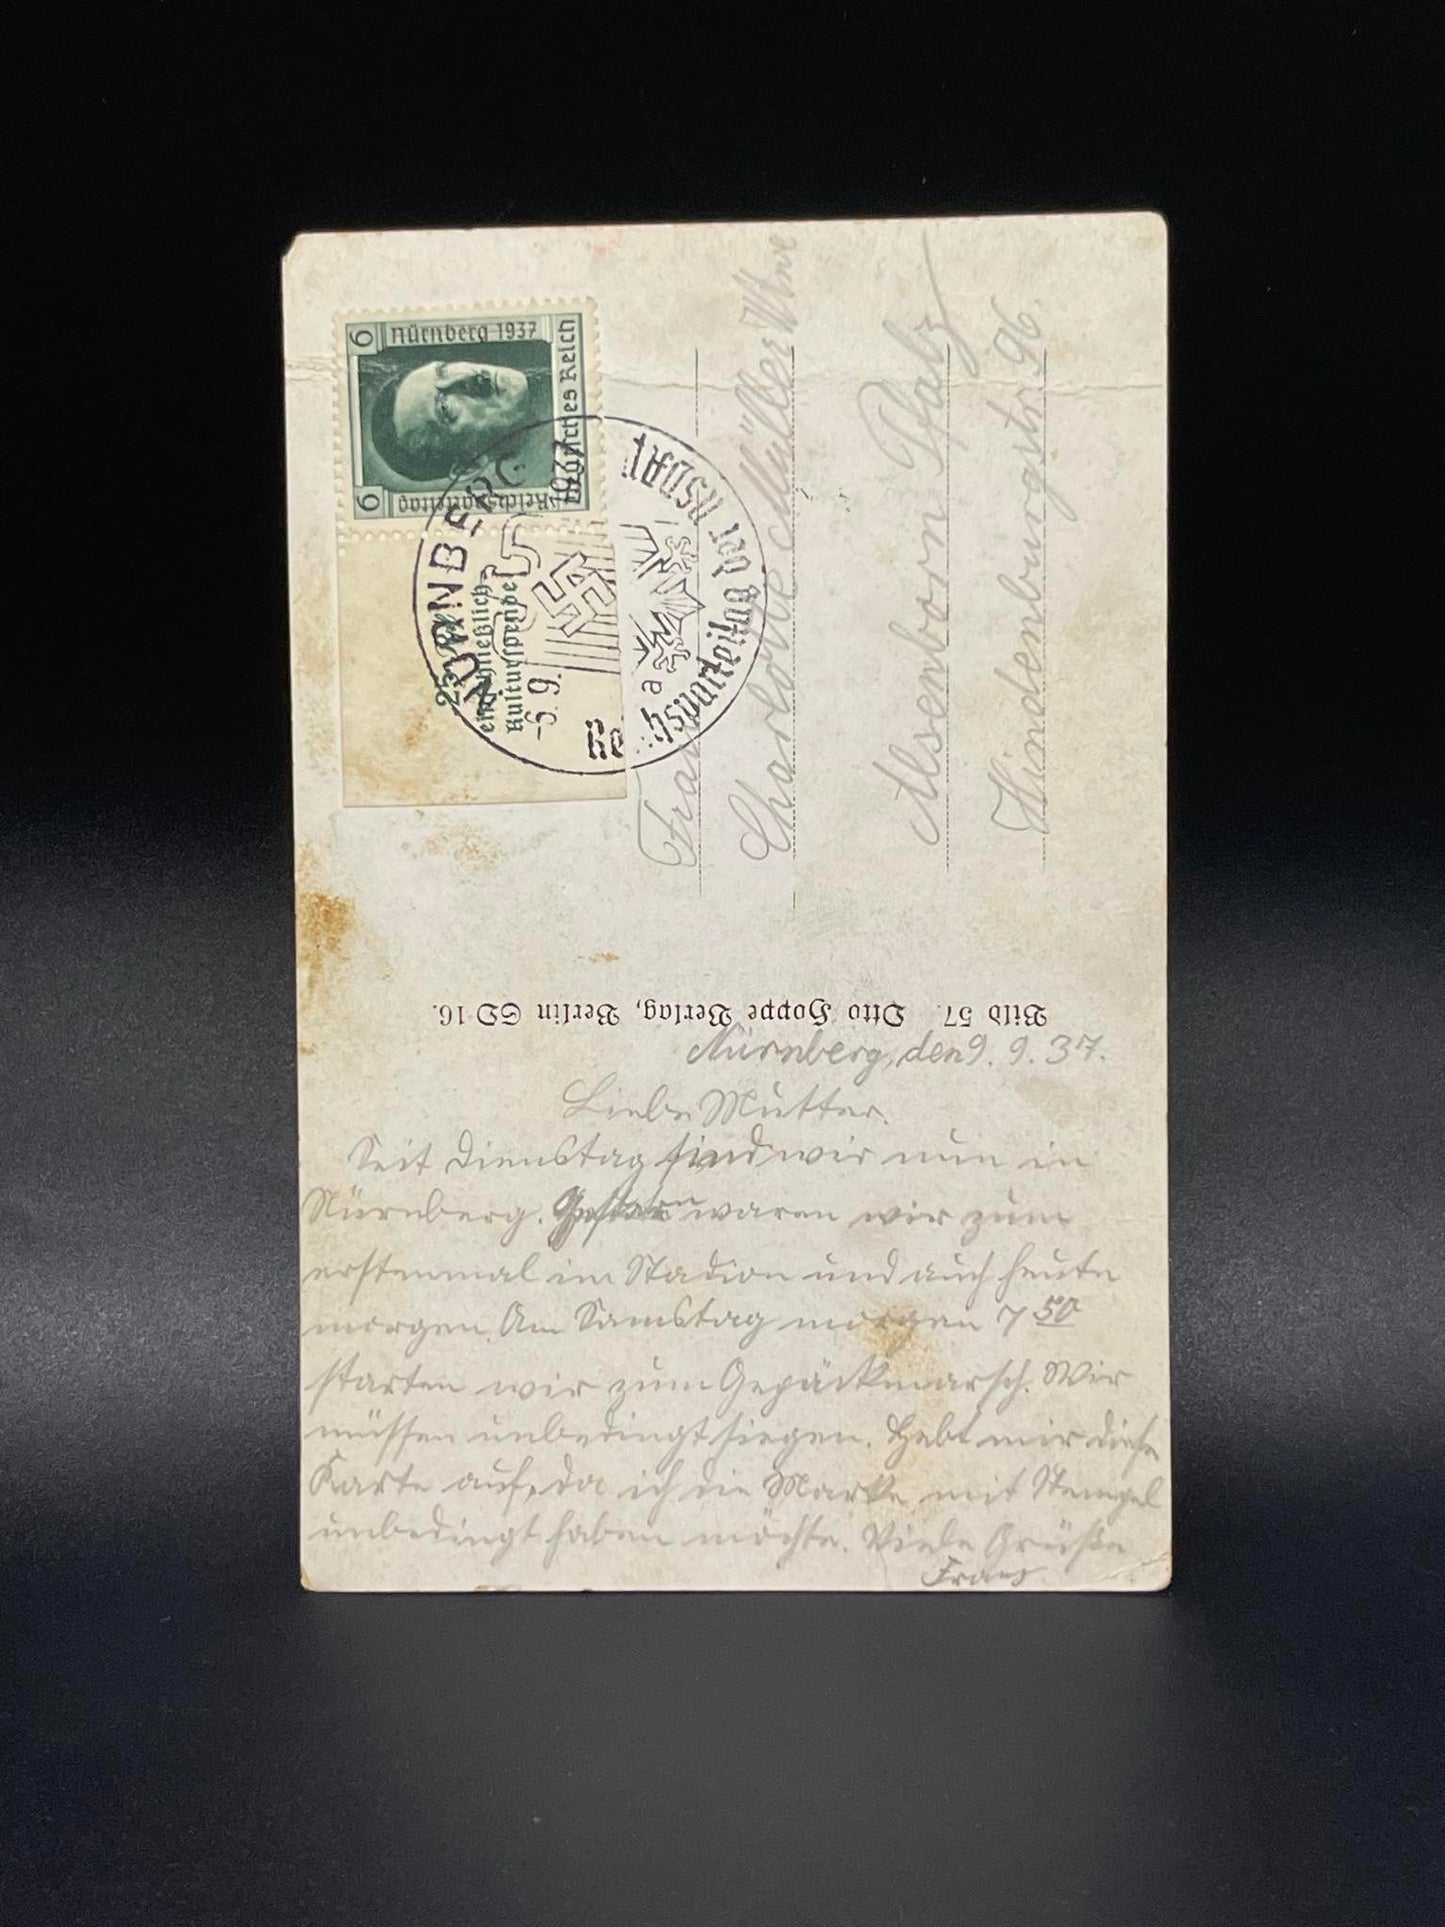 6 Nürnberg 1937
Deutsches Reich
6 Reichsparteitag 1937
25 Rpf
einschließlich
Kulturspende
NÜRNBERG
-6. 9.
a
Reichsparteitag der NSDAP
Frau
Charlotte Müller Wtwe
Alsenborn Pfalz
Hindenburgstr. 96.
Bild 57. Otto Hoppe Verlag, Berlin SO 16.
Nürnberg, den 9. 9. 37.
Liebe Mutter.
Seit Dienstag sind wir nun in
Nürnberg. Gestern waren wir zum
erstenmal im Stadion und auch heute
morgen. Am Samstag morgen 7 50
starten wir zum Gepäckmarsch. Wir
müssen unbedingt siegen. Hebt mir diese
Karte auf, da ich die Marke mit Stempel
unbedingt haben möchte. Viele Grüße
Franz.